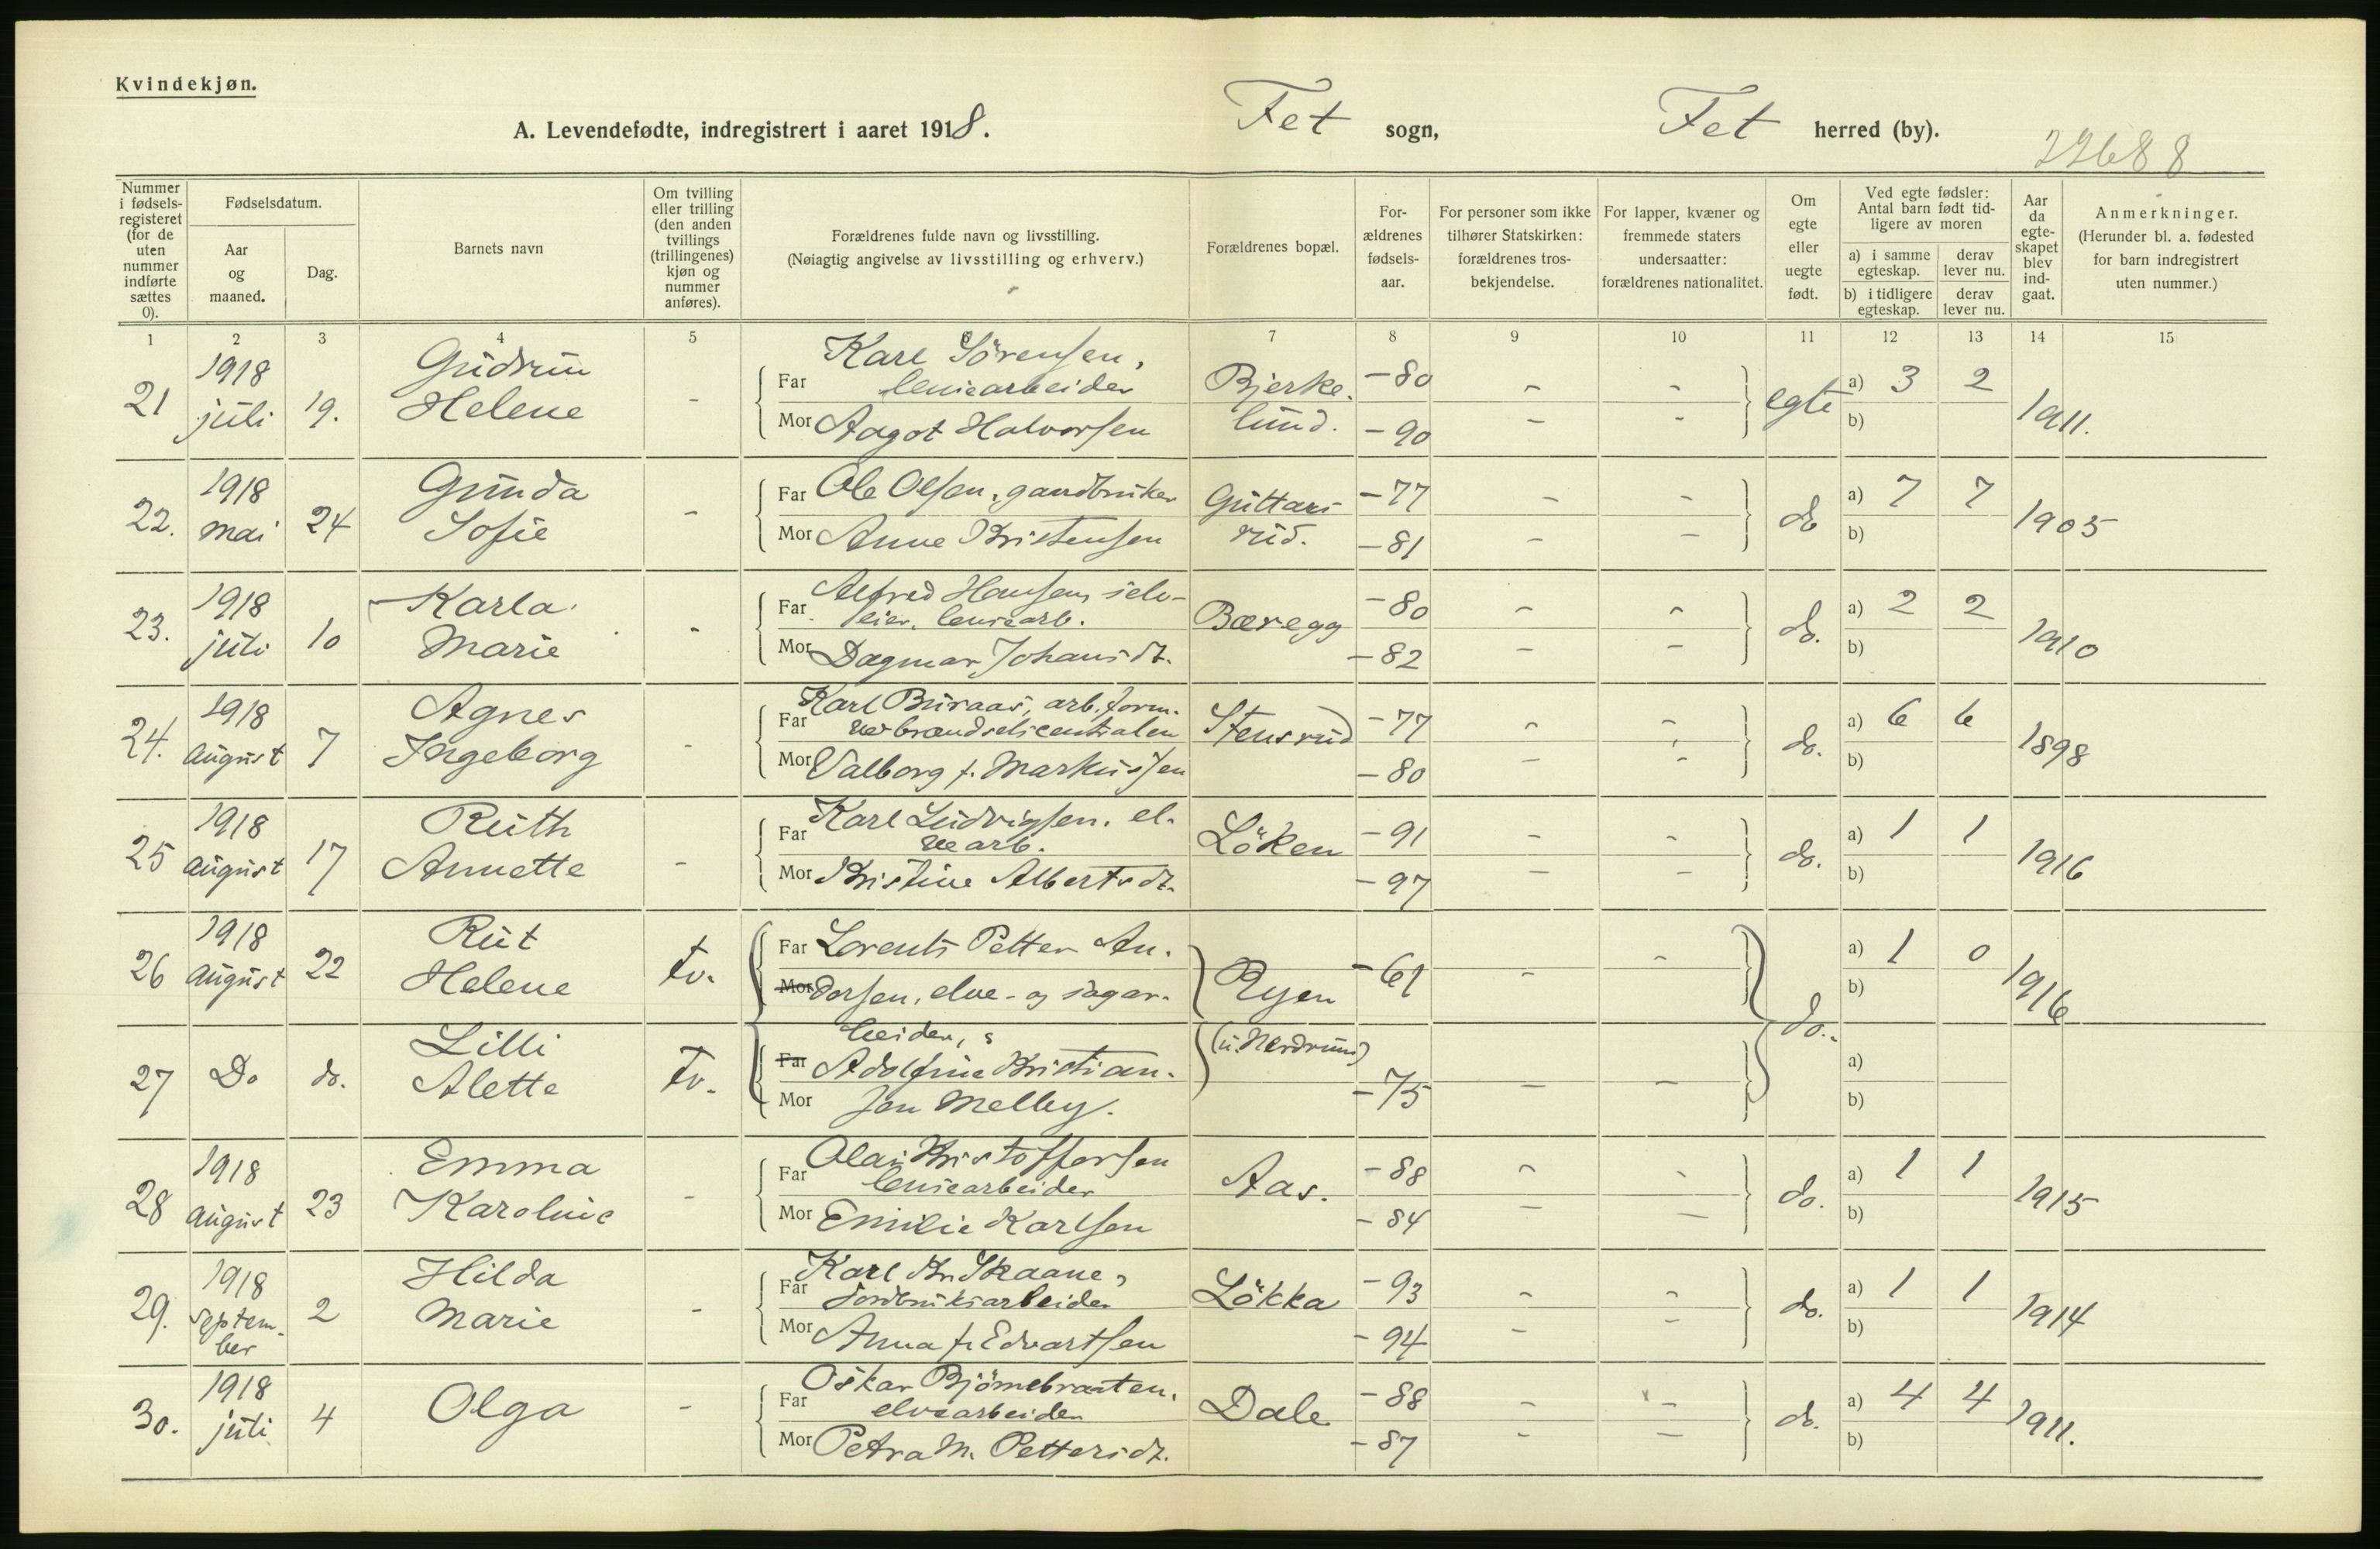 Kvindekjøn.
A. Levendefødte, indregistrert i aaret 1918. Fet sogn, Fet herred (by).
22688
Nummer i fødsels-registeret (for de uten nummer indførte sættes 0).
Fødselsdatum.
Aar og maaned.
Dag.
Barnets navn
Om tvilling eller trilling (den anden tvillings (trillingenes) kjøn og nummer anføres).
Forældrenes fulde navn og livsstilling.
(Nøiagtig angivelse av livsstilling og erhverv.)
Forældrenes bopæl.
For-ældrenes fødsels-aar.
For personer som ikke tilhører Statskirken: forældrenes tros-bekjendelse.
For lapper, kvæner og fremmede staters undersaatter: forældrenes nationalitet.
Om egte eller uegte født.
Ved egte fødsler: Antal barn født tid-ligere av moren
a) i samme egteskap.
derav lever nu.
b) i tidligere egteskap.
derav lever nu.
Aar da egte-skapet blev ind-gaat.
Anmerkninger.
(Herunder bl. a. fødested for barn indregistrert uten nummer.)
1 2 3 4 5 6 7 8 9 10 11 12 13 14 15
21 1918 juli 19. Gudrun Helene -
Far Karl Sörensen, lensearbeider
Mor Aagot Halvorsen
Bjerke-lund. -80 -90 - - - - egte a) 3 2 b) 1911.
22. 1918 mai 24 Gunda Sofie -
Far Ole Olsen, gaardbruker
Mor Anne Kristensen
Guttars-rud. -77 -81 - - - - do a) 7 7 b) 1905
23. 1918 juli 10 Karla Marie -
Far Alfred Hansen, selv-eier, lensearb.
Mor Dagmar Johansdt.
Bæregg -80 -82 - - - - do. a) 2 2 b) 1910
24. 1918 August 7 Agnes Ingeborg -
Far Karl Buraas, arb. form. vedbrændselscentralen
Mor Valborg f. Markussen
Stensrud -77 -80 - - - - do. a) 6 6 b) 1898
25 1918 August 17 Ruth Annette -
Far Karl Ludvigsen, el-vearb.
Mor Kristine Albertsdt.
Löken -91 -97 - - - - do. a) 1 1 b) 1916
26 1918 August 22 Rut Helene tv.
Far Lorents Petter An-
Mor dersen, elve- og sagar-
Ryen -61 - - a) 1 0 b) 1916
27 Do do. Lilli Alette tv.
beider, &
Far Adolfine Kristian-
Mor sen Melby.
(u. Nerdrum) -75 - - do. a) b)
28 1918 August 23 Emma Karoline -
Far Olai Kristoffersen lensearbeider
Mor Emilie Karlsen
Aas. -88 -84 - - - - do. a) 1 1 b) 1915
29. 1918 Septem-ber 2 Hilda Marie -
Far Karl Kr. Skaane, jordbruksarbeider
Mor Anna f. Edvartsen
Lökka -93 -94 - - - - do. a) 1 1 b) 1914
30. 1918 juli 4 Olga -
Far Oskar Björnebraaten, elvearbeider
Mor Petra M. Pettersdt.
Dale -88 -87 - - - - do. a) 4 4 b) 1911.